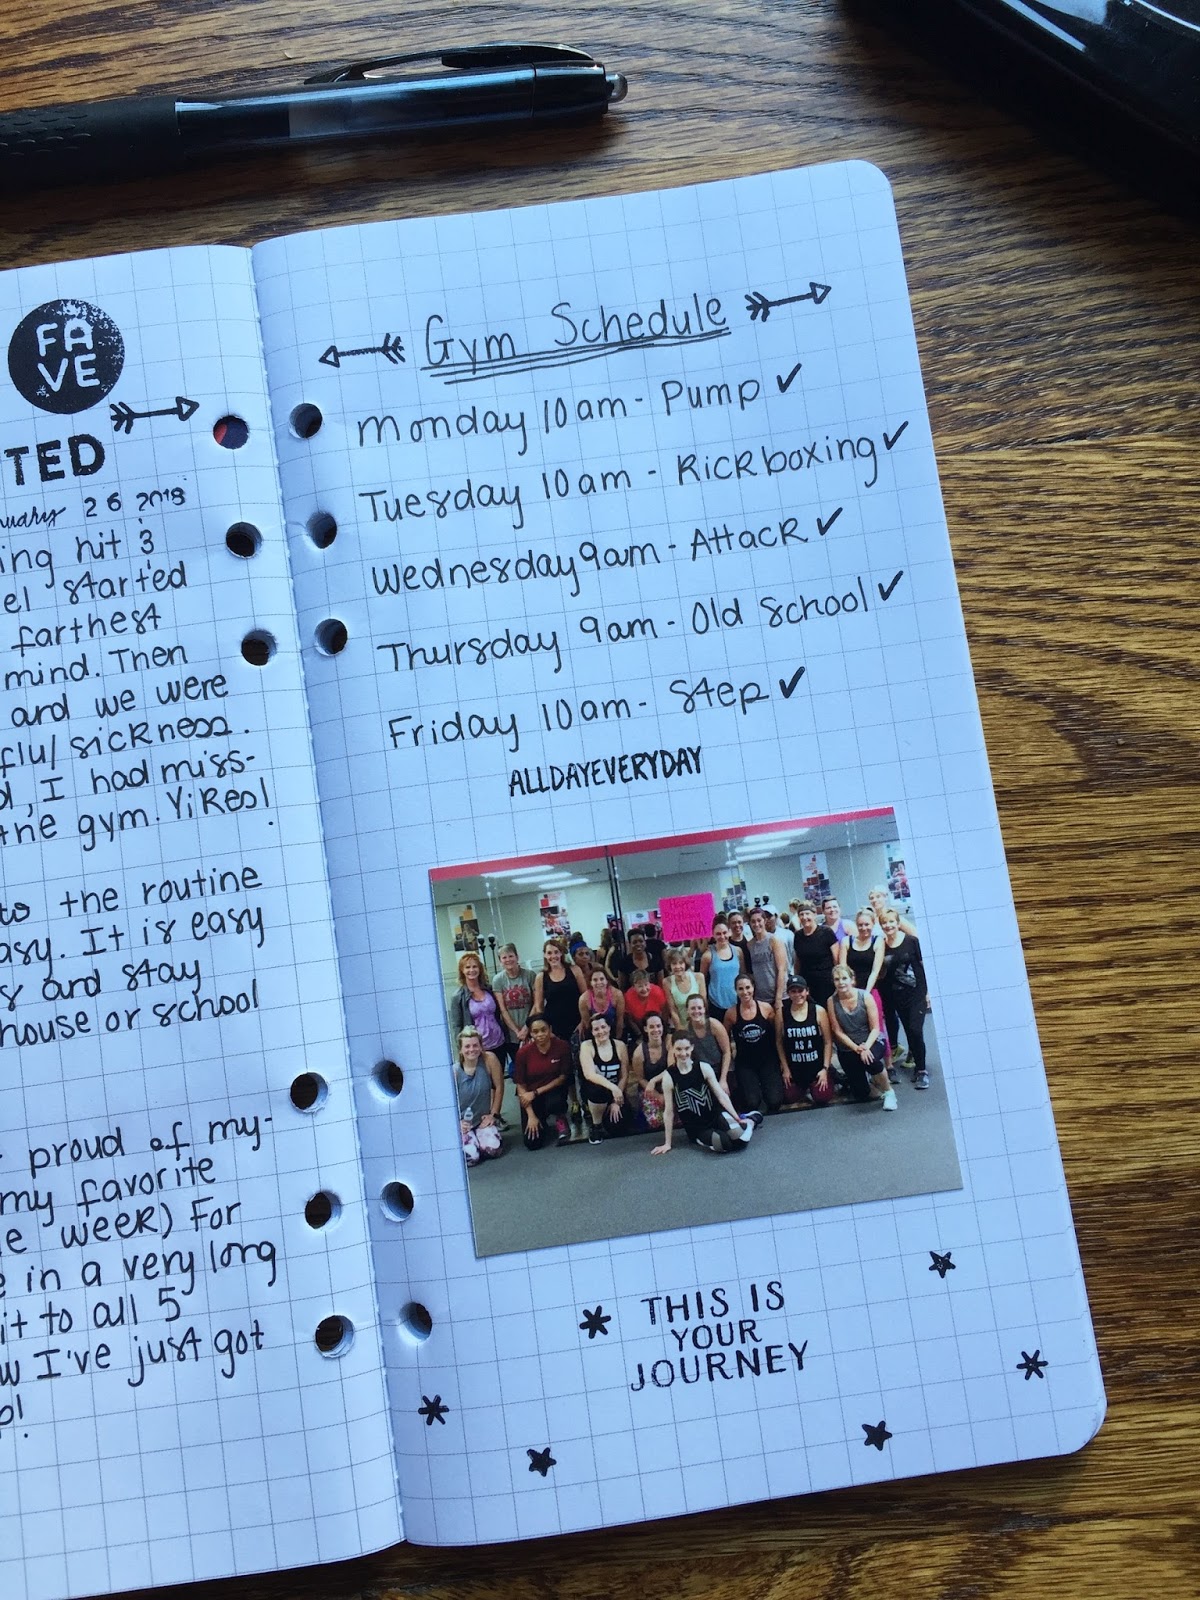 FA
VE
TED
26 2018
hit 3
started
farthest
mind. Then
and we were
flu/sickness.
, I had miss-
the gym. Yikes!
to the routine
easy. It is easy
and stay
house or school
proud of my-
my favorite
week) For
in a very long
it to all 5
I've just got
Gym Schedule
Monday 10am - Pump ✓
Tuesday 10am - Kickboxing ✓
Wednesday 9am - Attack ✓
Thursday 9am - Old School ✓
Friday 10am - Step ✓
ALLDAYEVERYDAY
Happy
Birthday
ANNA
STRONG
AS A
MOTHER
THIS IS
YOUR
JOURNEY